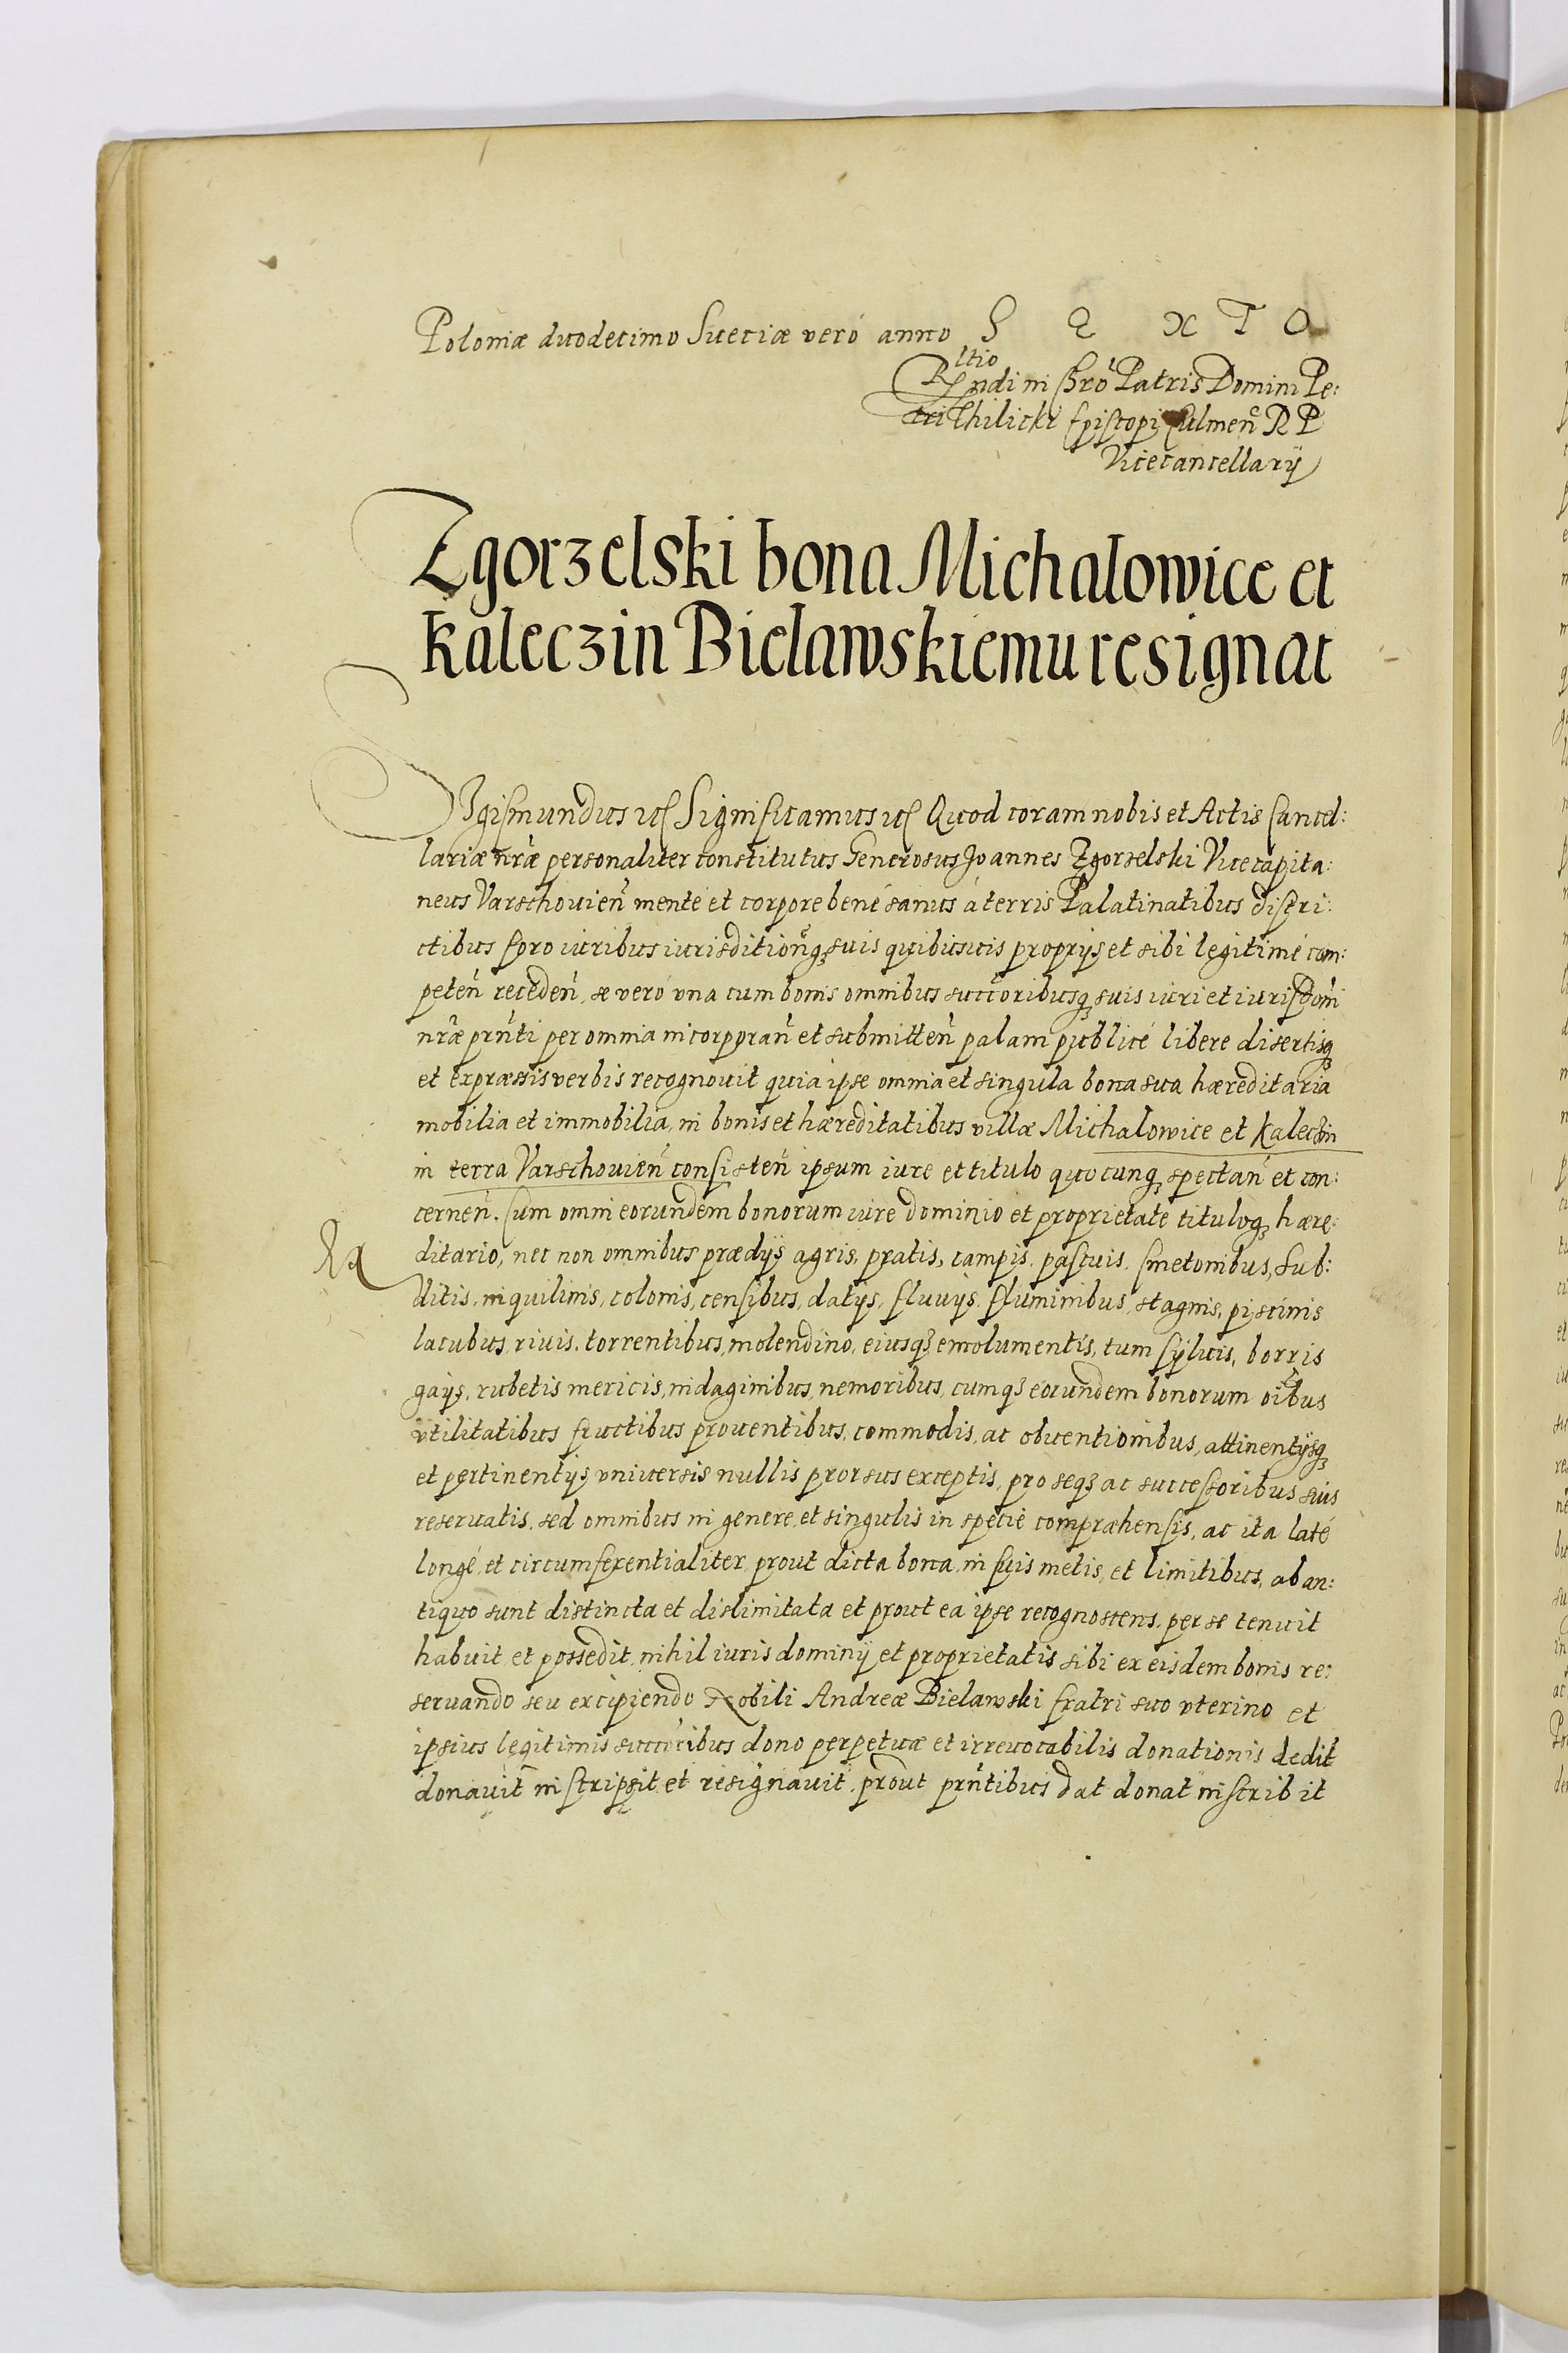 Poloniæ duodecimo Sueciæ veró anno S E X T O
ltio
Rndi in Chrō Patris Domini Pe:
tri Thilicki Episcopi Culmen̄ R P
Vicecancellarÿ
Zgorzelski bona Michalowice et
Kaleczin Bielawskiemu resignat
SIgismundus etc Significamus etc Quod coram nobis et Actis Cancel:
lariæ nr̄æ personaliter constitutus Generosus Joannes Zgorzelski Vicecapita:
neus Varschouien̄ mente et corpore bené sanus á terris Palatinatibus distri:
ctibus foro iuribus iurisdition̄qꝫ suis quibusuis proprijs et sibi legitimé com:
peten̄ receden̄, se veró vna cum bonis omnibus succ̄oribusqꝫ suis iuri et iurisdōni
nr̄æ prn̄ti per omnia incorporan̄ et submitten̄ palam publicé libere disertisqꝫ
et expræssis verbis recognouit quia ipse omnia et singula bona sua hæreditaria
mobilia et immobilia, in bonis et hæreditatibus villæ Michalowice et Kaleczin
in terra Varschouien̄ consisten̄ ipsum iure et titulo quocunqꝫ spectan̄ et con:
cernen̄. Cum omni eorundem bonorum iure dominio et proprietate tituloqꝫ hære:
ditario, nec non omnibus prædijs agris, pratis, campis, pascuis, Cmetonibus, Sub:
ditis, inquilinis, colonis, censibus, datijs, fluuijs, fluminibus, stagnis, piscinis
lacubus, riuis, torrentibus, molendino, eiusqꝫ emolumentis, tum syluis, borris
gaÿs, rubetis mericis, indaginibus, nemoribus, cumqꝫ eorundem bonorum oībus
vtilitatibus fructibus prouentibus, commodis, ac obuentionibus, attinentijsqꝫ
et pertinentijs vniuersis nullis prorsus exceptis, pro seqꝫ ac successoribus suis
reseruatis, sed omnibus in genere, et singulis in specie compræhensis, ac ita laté
longé, et circumferentialiter prout dicta bona, in suis metis, et limitibus, ab an:
tiquo sunt distincta et dislimitata et prout ea ipse recognoscens, per se tenuit
habuit et possedit, nihil iuris dominij et proprietatis sibi ex eisdem bonis re:
seruando seu excipiendo Nobili Andreæ Bielawski fratri suo vterino et
ipsius legitimis succ̄oribus dono perpetuæ et irreuocabilis donationis dedit
donauit inscripsit et resignauit, prout prn̄tibus dat donat inscribit